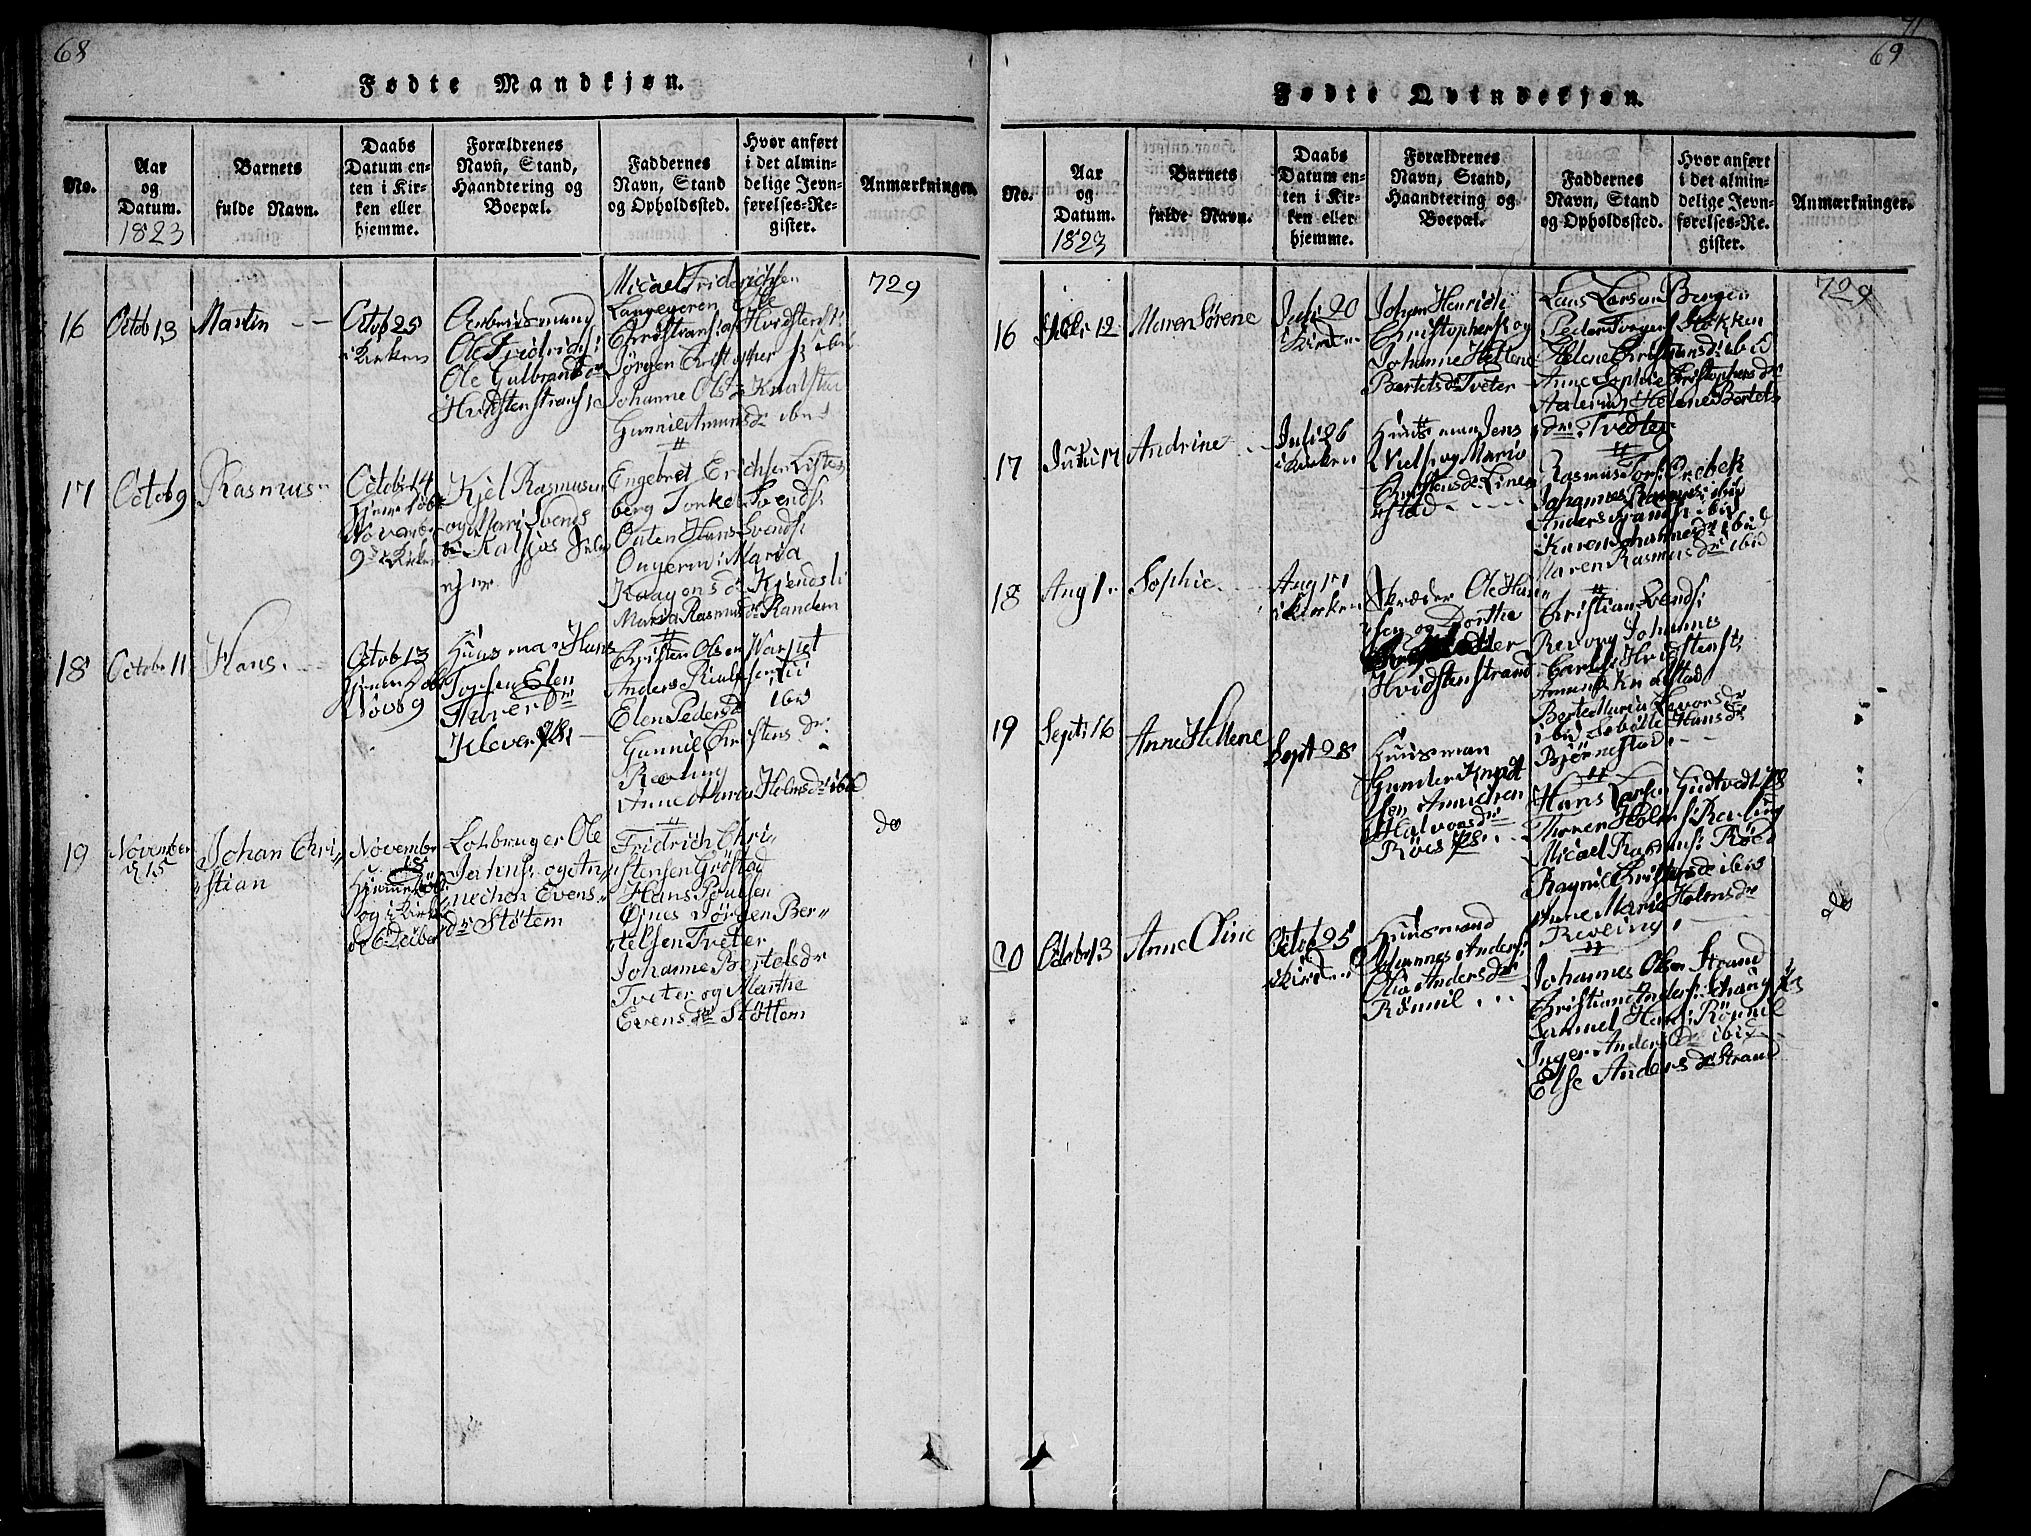 68
Fødte Mandkjøn.
No.
Aar
og
Datum.
1823
Barnets
fulde Navn.
Daabs
Datum en-
ten i Kir-
ken eller
hjemme.
Forældrenes
Navn, Stand,
Haandtering og
Boepæl.
Faddernes
Navn, Stand
og Opholdssted.
Hvor anført
i det almin-
delige Jevn-
førelses-Re-
gister.
Anmærkninger.
16
Octob 13
Martin
Octob 25
i Kirken
Arbeidsmand
Ole Fridrichs:
Ole Gulbrands dr
Hvidstenstrand
Micael Friderichsen
Langegeren Ole
Christians: Hvidstenst:
Jørgen Christopher s: ibid
Johanne Ols Knalstad
Gunnil Amunds dr ibid
729
17
Octob 9
Rasmus
Octob 14
hjemdøbt
November
9 i Kirken
Kjel Rasmusen
og Mari Svends
dr Kalsjøs
ejer
Engebret Erichsen Listes
berg Torkel Svends:
Outen Hans Svends:
Ongerm: Maria
Kaagons dr Kjendsli
Maria Rasmus dr Randem
18
Octobr 11
Hans
Octob 13
hjemdøbt
Novb 9
Huusman Hans
Torsen Elen
Thorer dr
Klever
Christen Olsen Harpet
Anders
Elen Peders d ibid
Gunnil Christens dr:
Røvling
Anne Marie Holms dr ibid
19
November
d 15
Johan Chri
stian
November
18
hjemmedøbt
og i Kirke
do 6 Decber
Lotbruger Ole
Johns: og An
nechen Evens
dr Støtem
Fridrich Chri
stensen Grøstad
Hans Poulsen
Ønes Jørgen Ber
telsen Tveter
Johanne Bertels dr
Tveter og Marthe
Evens dr Støttem
do
71
69
Fødte Qvindekjøn.
No.
Aar
og
Datum.
1823
Barnets
fulde Navn.
Daabs
Datum en-
ten i Kir-
ken eller
hjemme.
Forældrenes
Navn, Stand,
Haandtering og
Boepæl.
Faddernes
Navn, Stand
og Opholdssted.
Hvor anført
i det almin-
delige Jevn-
førelses-Re-
gister.
Anmærkninger.
16
12
Maren Sørene
Juli 20
i Kirken
Johan Henrich
Christophers: og
Johanne Hellene
Bertels dr Tveter
Lars Larsen Bergen
Peder Støkken
Helene Christians dr ibid
Anne Sophie Christophers dr
Helene Bertels
dr: Tvedter
729
17
Juli 17
Andrine
Juli 26
i Kirken
Huusman Jens
Niels: og Maria
Christens dr Linne
stad
Rasmus Prebek
Johannes Rasmus: ibid
Anders ibid
Karen Johannes dr ibid
Maren Rasmus dr ibid
18
Aug 1
Sophie
Aug 17
i Kirken
Skræder Ole Han
sen og Dorthe
Hvidstenstrand
Christian Svends:
Revong Johannes
Carls: Hvidstenst:
Amund Knalstad
Berte Maria Levors dr
ibid Sebille Hans dr
Bjørnestad
19
Septi 16
Anne Hellene
Sept 28
Huusman
Gunder Knudt
sen Annichen
Halvors dr
Røes
Hans Larsen Gudtvedt
Thorer Holms: Røvling
Micael Rasmus: Røed
Ragnil Christens dr ibid
Anne Maria Holms dr
Revling
20
Octobr 13
Anne Oline
Octob 25
i Kirken
Huusmand
Johannes Anders:
Olia Anders dr
Rømmil
Johannes Olsen Strand
Christian Anders:
Samuel Hans: Rømmil
Inger Anders dr ibid
Else Anders dr Strand
do